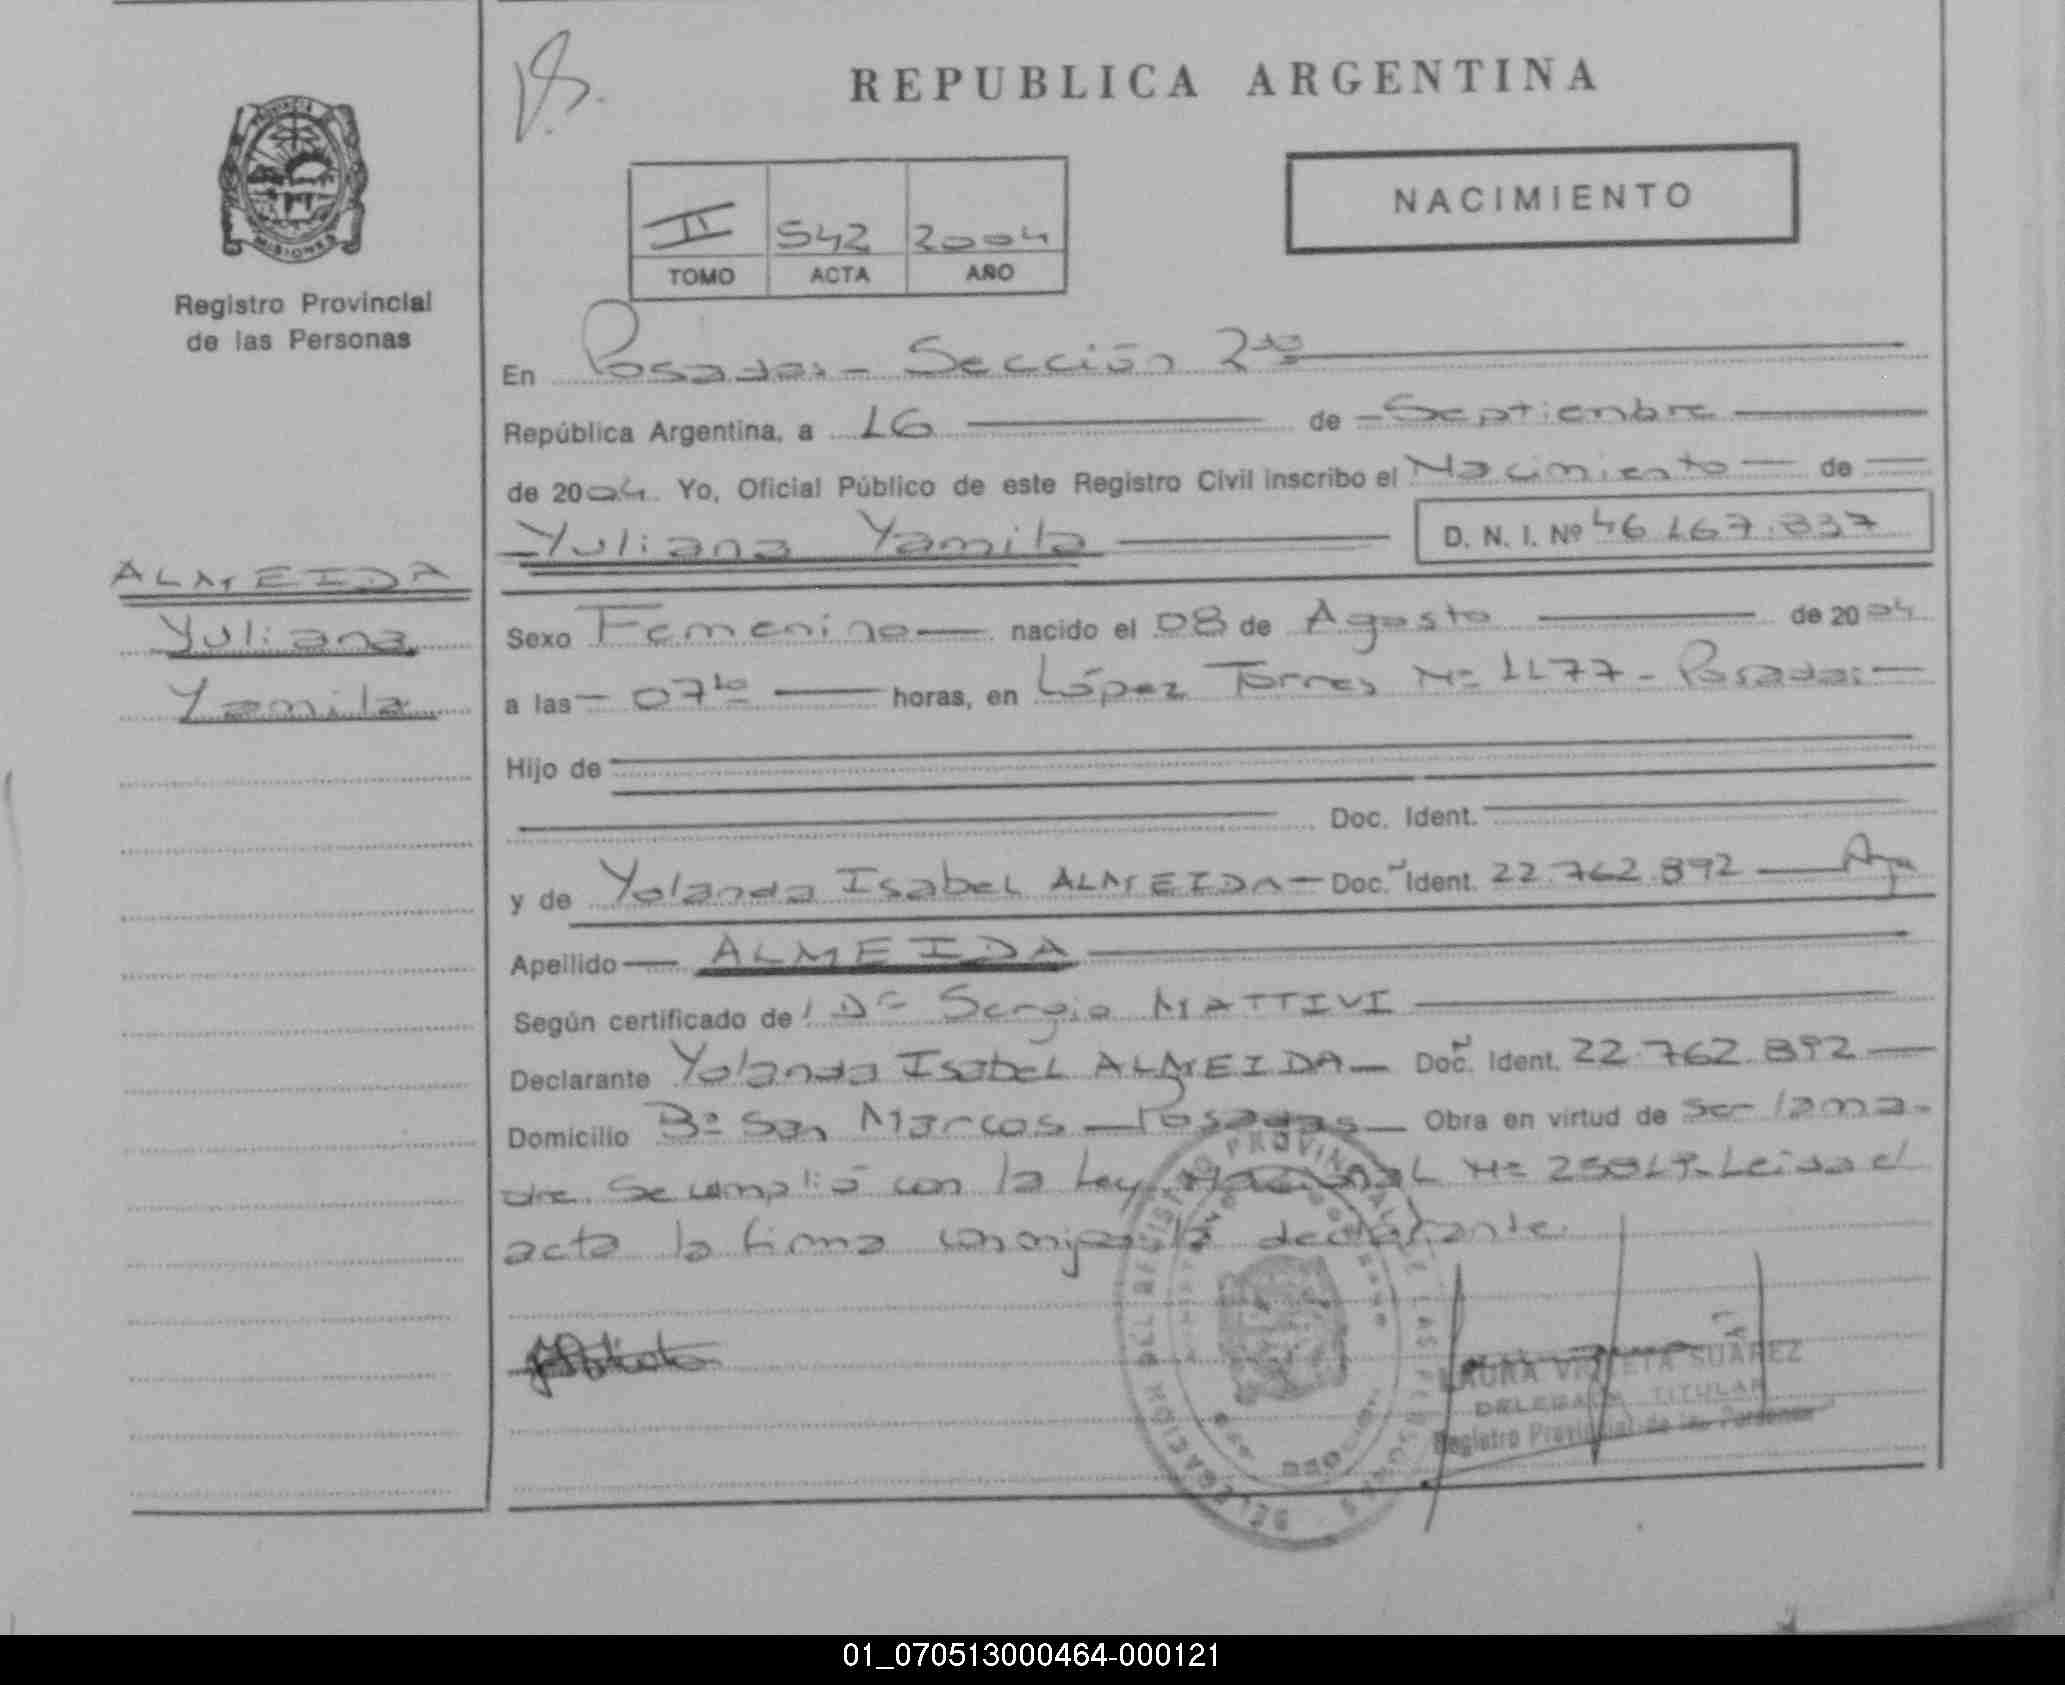 REPUBLICA ARGENTINA
NACIMIENTO
II 542 2004
TOMO ACTA AÑO
PROVINCIA
MISIONES
Registro Provincial
de las Personas
ALMEIDA
Yuliana
Yamila
En Posadas - Sección 2da
República Argentina, a 16 de Septiembre
de 2004. Yo, Oficial Público de este Registro Civil inscribo el Nacimiento de
Yuliana Yamila D. N. I. Nº 46.167.837
Sexo Femenino nacido el 08 de Agosto de 2004
a las 07 10 horas, en López Torres Nº 1177 - Posadas
Hijo de
Doc. Ident.
y de Yolanda Isabel ALMEIDA Doc. Ident. 22.762.892
Apellido ALMEIDA
Según certificado de Dr Sergio MATTIVI
Declarante Yolanda Isabel ALMEIDA Doc. Ident. 22.762.892
Domicilio Bº San Marcos - Posadas Obra en virtud de ser la ma-
dre. Se cumplió con la Ley Nacional Nº Leída el
acta la firma conmigo la declarante.
LAURA VIOLETA SUAREZ
DELEGADA TITULAR
Registro Provincial de las Personas
DELEGACION DEL REGISTRO PROVINCIAL DE LAS PERSONAS
01_070513000464-000121